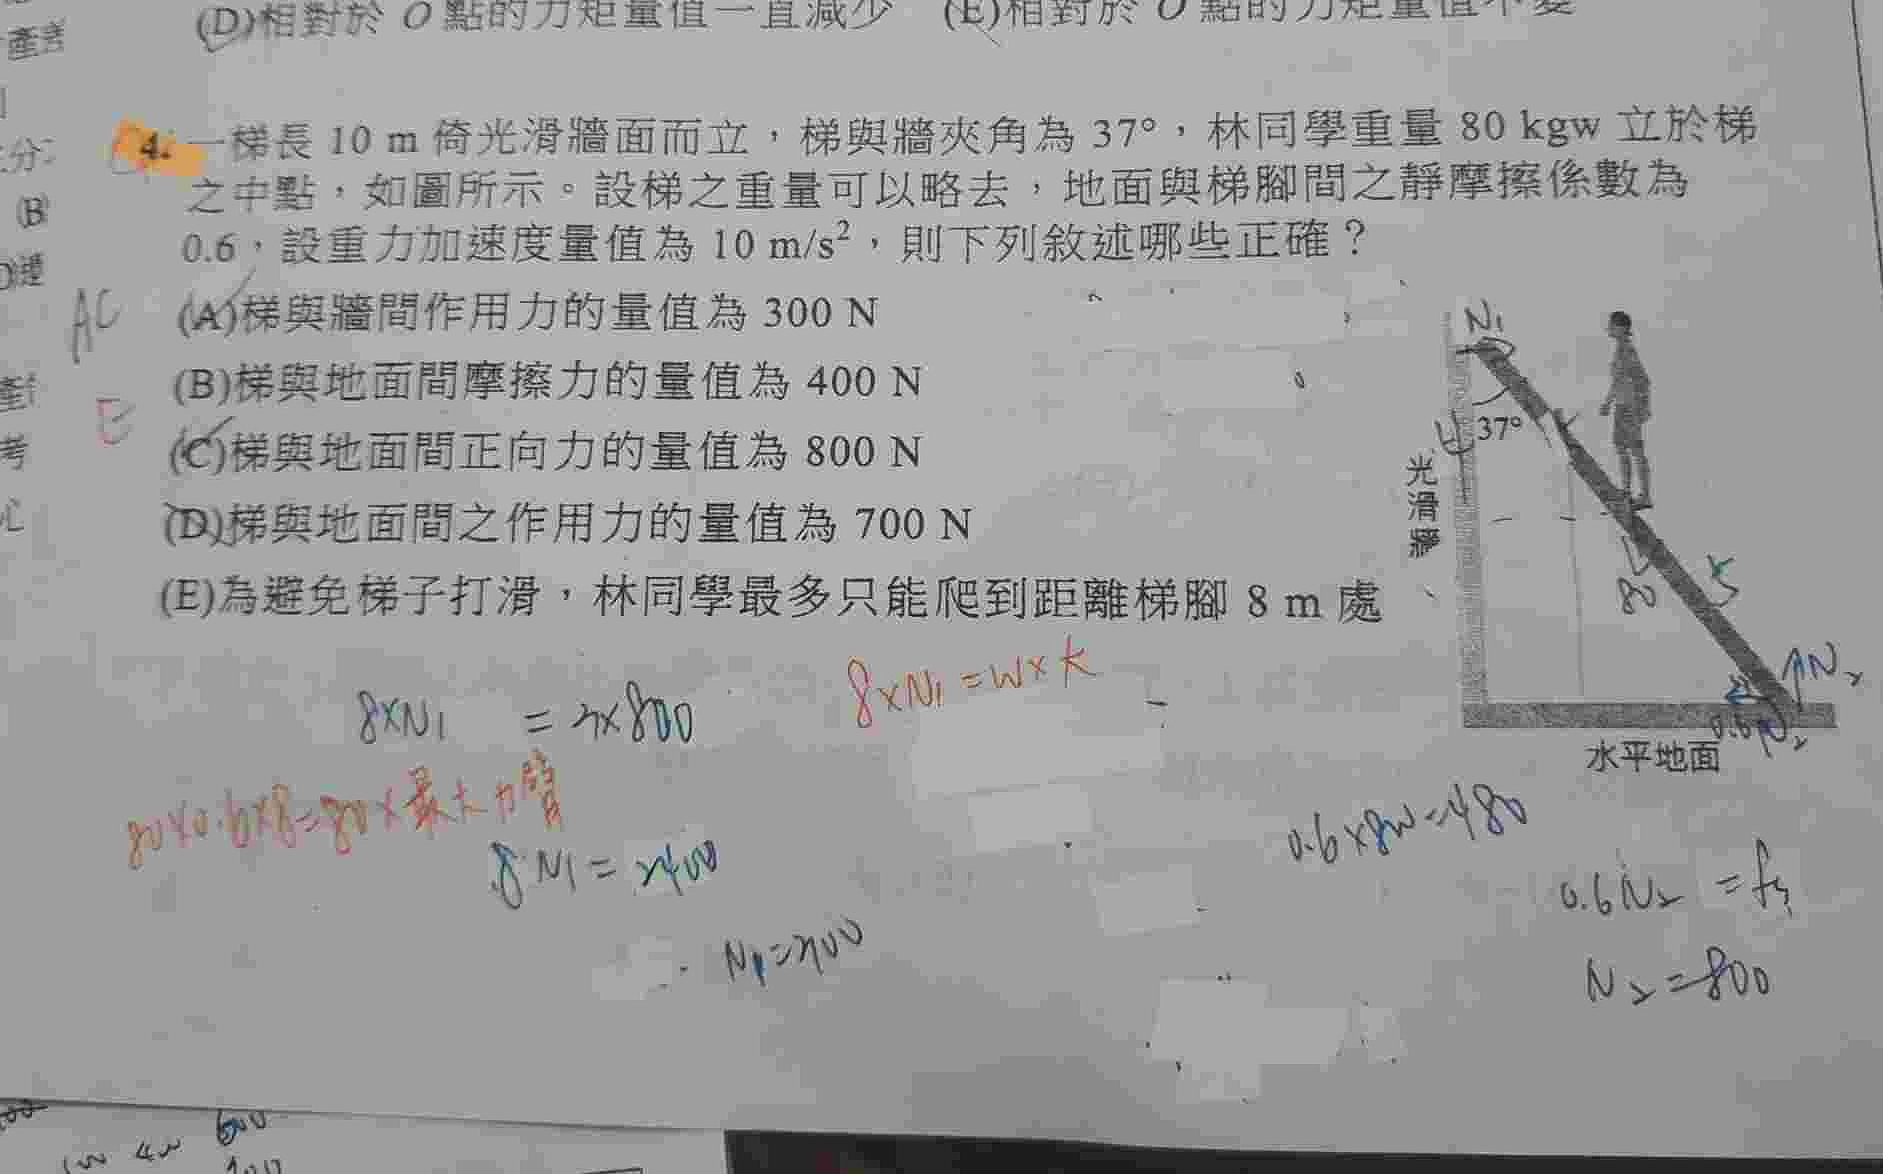 產
(D)相對於 O 點的力矩量值一直減少 (E)相對於 O 點的力矩量值不變
分
(B)
4. 一梯長 10 m 倚光滑牆面而立，梯與牆夾角為 37°，林同學重量 80 kgw 立於梯
之中點，如圖所示。設梯之重量可以略去，地面與梯腳間之靜摩擦係數為
0.6，設重力加速度量值為 10 m/s²，則下列敘述哪些正確？
(A)梯與牆間作用力的量值為 300 N
(B)梯與地面間摩擦力的量值為 400 N
(C)梯與地面間正向力的量值為 800 N
(D)梯與地面間之作用力的量值為 700 N
(E)為避免梯子打滑，林同學最多只能爬到距離梯腳 8 m 處
AC
E
考
心
N1
37°
光滑牆
80
5
N2
0.6N2
水平地面
8×N1 = 3×800
8×N1 = W×k
80×0.6×8=80×最大力臂
8N1 = 2400
N1=300
0.6×800=480
0.6N2 = fs
N2=800
600